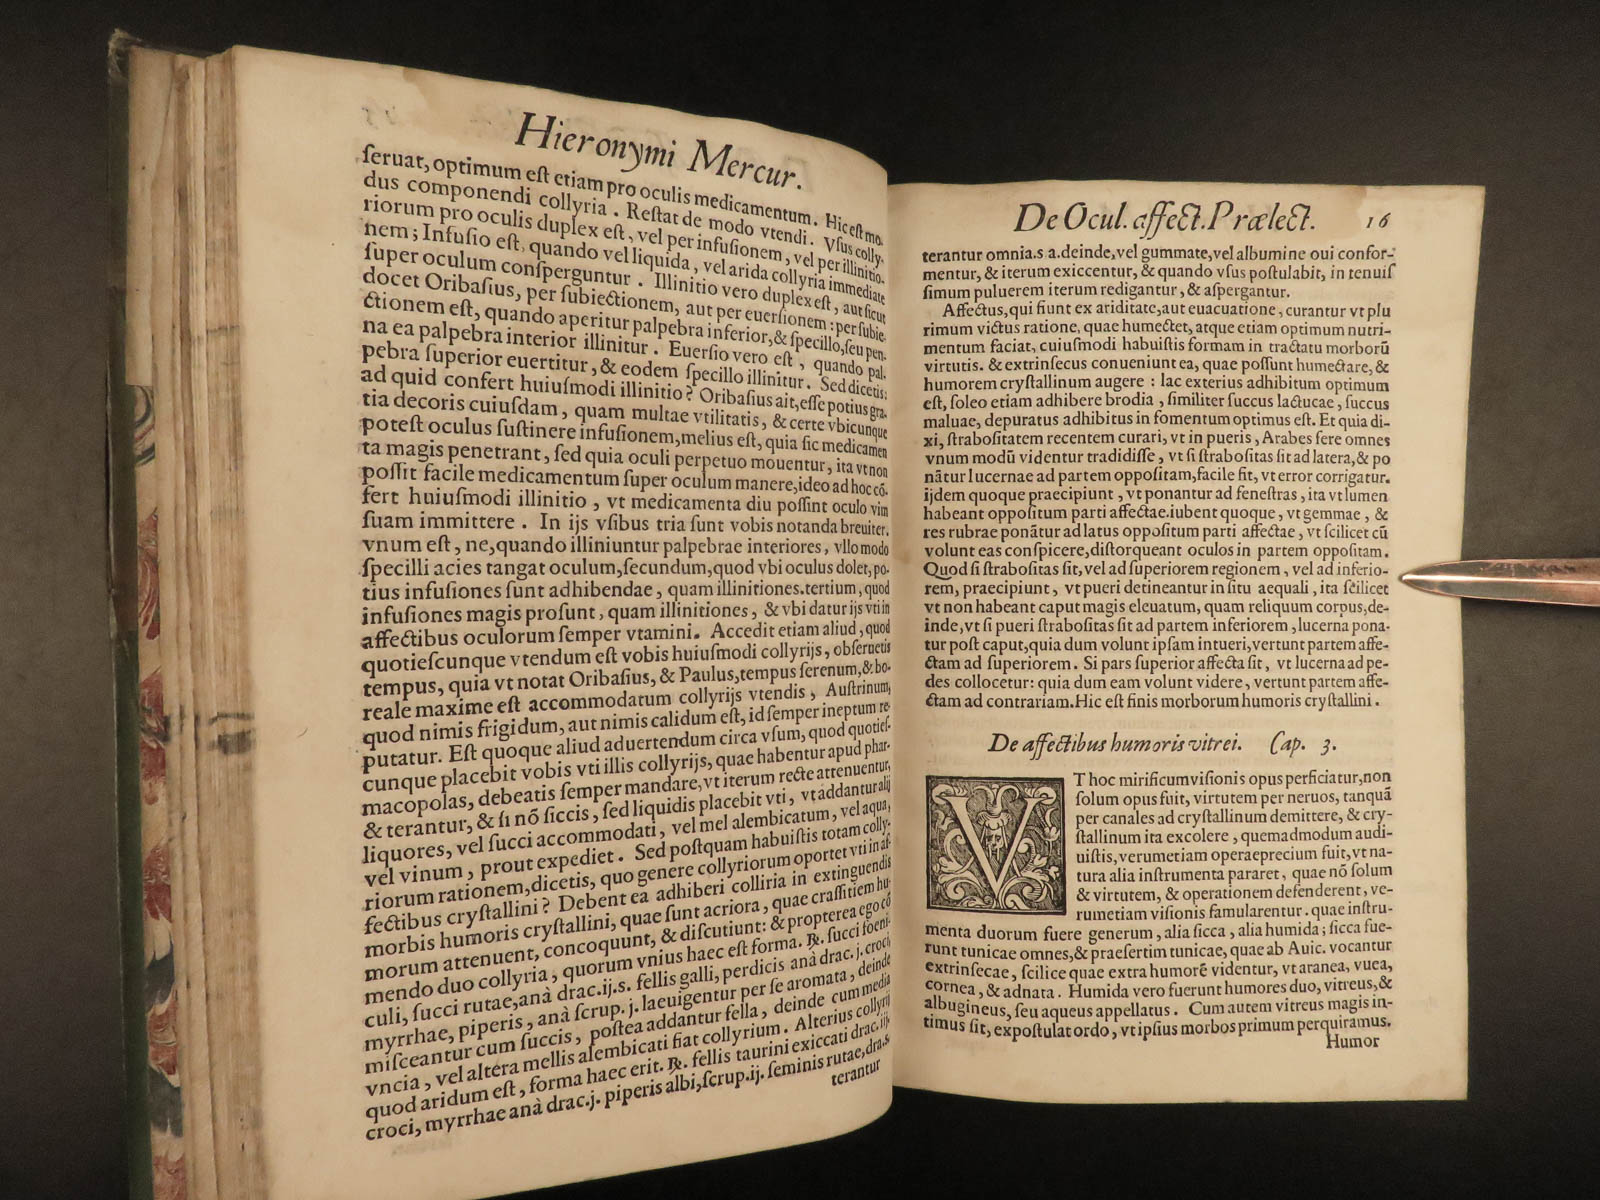 Hieronymi Mercur.
ſeruat, optimum eſt etiam pro oculis medicamentum. Hic eſt mo-
dus componendi collyria. Reſtat de modo vtendi. Vſus colly-
riorum pro oculis duplex eſt, vel per infuſionem, vel per illinitio-
nem; Infuſio eſt, quando vel liquida, vel arida collyria immediate
ſuper oculum conſperguntur. Illinitio vero duplex eſt, aut ſicut
docet Oribaſius, per ſubiectionem, aut per euerſionem: per ſubie-
ctionem eſt, quando aperitur palpebra inferior, & ſpecillo, ſeu pen-
na ea palpebra interior illinitur. Euerſio vero eſt, quando pal-
pebra ſuperior euertitur, & eodem ſpecillo illinitur. Sed dicetis:
ad quid confert huiuſmodi illinitio? Oribaſius ait, eſſe potius gra-
tia decoris cuiuſdam, quam multae vtilitatis, & certe vbicunque
poteſt oculus ſuſtinere infuſionem, melius eſt, quia ſic medicamen
ta magis penetrant, ſed quia oculi perpetuo mouentur, ita vt non
poſſit facile medicamentum ſuper oculum manere, ideo ad hoc cõ-
fert huiuſmodi illinitio, vt medicamenta diu poſſint oculo vim
ſuam immittere. In ijs vſibus tria ſunt vobis notanda breuiter.
vnum eſt, ne, quando illiniuntur palpebrae interiores, vllo modo
ſpecilli acies tangat oculum, ſecundum, quod vbi oculus dolet, po-
tius infuſiones ſunt adhibendae, quam illinitiones. tertium, quod
infuſiones magis proſunt, quam illinitiones, & vbi datur ijs vti in
affectibus oculorum ſemper vtamini. Accedit etiam aliud, quod
quotieſcunque vtendum eſt vobis huiuſmodi collyrijs, obſeruetis
tempus, quia vt notat Oribaſius, & Paulus, tempus ſerenum, & bo-
reale maxime eſt accommodatum collyrijs vtendis, Auſtrinum,
quod nimis frigidum, aut nimis calidum eſt, id ſemper ineptum re-
putatur. Eſt quoque aliud aduertendum circa vſum, quod quotieſ-
cunque placebit vobis vti illis collyrijs, quae habentur apud phar-
macopolas, debeatis ſemper mandare, vt iterum recte attenuentur,
& terantur, & ſi nõ ſiccis, ſed liquidis placebit vti, vt addantur alij
liquores, vel ſucci accommodati, vel mel alembicatum, vel aqua,
vel vinum, prout expediet. Sed poſtquam habuiſtis totam colly-
riorum rationem, dicetis, quo genere collyriorum oportet vti in af-
fectibus cryſtallini? Debent ea adhiberi colliria in extinguendis
morbis humoris cryſtallini, quae ſunt acriora, quae craſſitiem hu-
morum attenuent, concoquunt, & diſcutiunt: & propterea ego cõ
mendo duo collyria, quorum vnius haec eſt forma. ℞. ſucci foeni-
culi, ſucci rutae, anà drac. ij. s. fellis galli, perdicis anà drac. j. croci,
myrrhae, piperis, anà ſcrup. j. laeuigentur per ſe aromata, deinde
miſceantur cum ſuccis, poſtea addantur fella, deinde cum media
vncia, vel altera mellis alembicati fiat collyrium. Alterius collyrij
quod aridum eſt, forma haec erit. ℞. fellis taurini exiccati drac. iij.
croci, myrrhae anà drac. j. piperis albi, ſcrup. ij. ſeminis rutae, dra. s.
terantur
De Ocul. affect. Prælect. 16
terantur omnia. s a. deinde, vel gummate, vel albumine oui confor-
mentur, & iterum exiccentur, & quando vſus poſtulabit, in tenuiſ
ſimum puluerem iterum redigantur, & aſpergantur.
Affectus, qui fiunt ex ariditate, aut euacuatione, curantur vt plu
rimum victus ratione, quae humectet, atque etiam optimum nutri-
mentum faciat, cuiuſmodi habuiſtis formam in tractatu morborũ
virtutis. & extrinſecus conueniunt ea, quae poſſunt humectare, &
humorem cryſtallinum augere: lac exterius adhibitum optimum
eſt, ſoleo etiam adhibere brodia, ſimiliter ſuccus lactucae, ſuccus
maluae, depuratus adhibitus in fomentum optimus eſt. Et quia di-
xi, ſtraboſitatem recentem curari, vt in pueris, Arabes fere omnes
vnum modũ videntur tradidiſſe, vt ſi ſtraboſitas ſit ad latera, & po
nãtur lucernae ad partem oppoſitam, facile fit, vt error corrigatur.
ijdem quoque praecipiunt, vt ponantur ad feneſtras, ita vt lumen
habeant oppoſitum parti affectae. iubent quoque, vt gemmae, &
res rubrae ponãtur ad latus oppoſitum parti affectae, vt ſcilicet cũ
volunt eas conſpicere, diſtorqueant oculos in partem oppoſitam.
Quod ſi ſtraboſitas ſit, vel ad ſuperiorem regionem, vel ad inferio-
rem, praecipiunt, vt pueri detineantur in ſitu aequali, ita ſcilicet
vt non habeant caput magis eleuatum, quam reliquum corpus, de-
inde, vt ſi pueri ſtraboſitas ſit ad partem inferiorem, lucerna pona-
tur poſt caput, quia dum volunt ipſam intueri, vertunt partem affe-
ctam ad ſuperiorem. Si pars ſuperior affecta ſit, vt lucerna ad pe-
des collocetur: quia dum eam volunt videre, vertunt partem affe-
ctam ad contrariam. Hic eſt finis morborum humoris cryſtallini.
De affectibus humoris vitrei. Cap. 3.
VT hoc mirificum viſionis opus perficiatur, non
ſolum opus fuit, virtutem per neruos, tanquã
per canales ad cryſtallinum demittere, & cry-
ſtallinum ita excolere, quemadmodum audi-
uiſtis, verumetiam operaeprecium fuit, vt na-
tura alia inſtrumenta pararet, quae nõ ſolum
& virtutem, & operationem defenderent, ve-
rumetiam viſionis famularentur. quae inſtru-
menta duorum fuere generum, alia ſicca, alia humida; ſicca fue-
runt tunicae omnes, & praeſertim tunicae, quae ab Auic. vocantur
extrinſecae, ſcilice quae extra humorẽ videntur, vt aranea, vuea,
cornea, & adnata. Humida vero fuerunt humores duo, vitreus, &
albugineus, ſeu aqueus appellatus. Cum autem vitreus magis in-
timus ſit, expoſtulat ordo, vt ipſius morbos primum perquiramus.
Humor